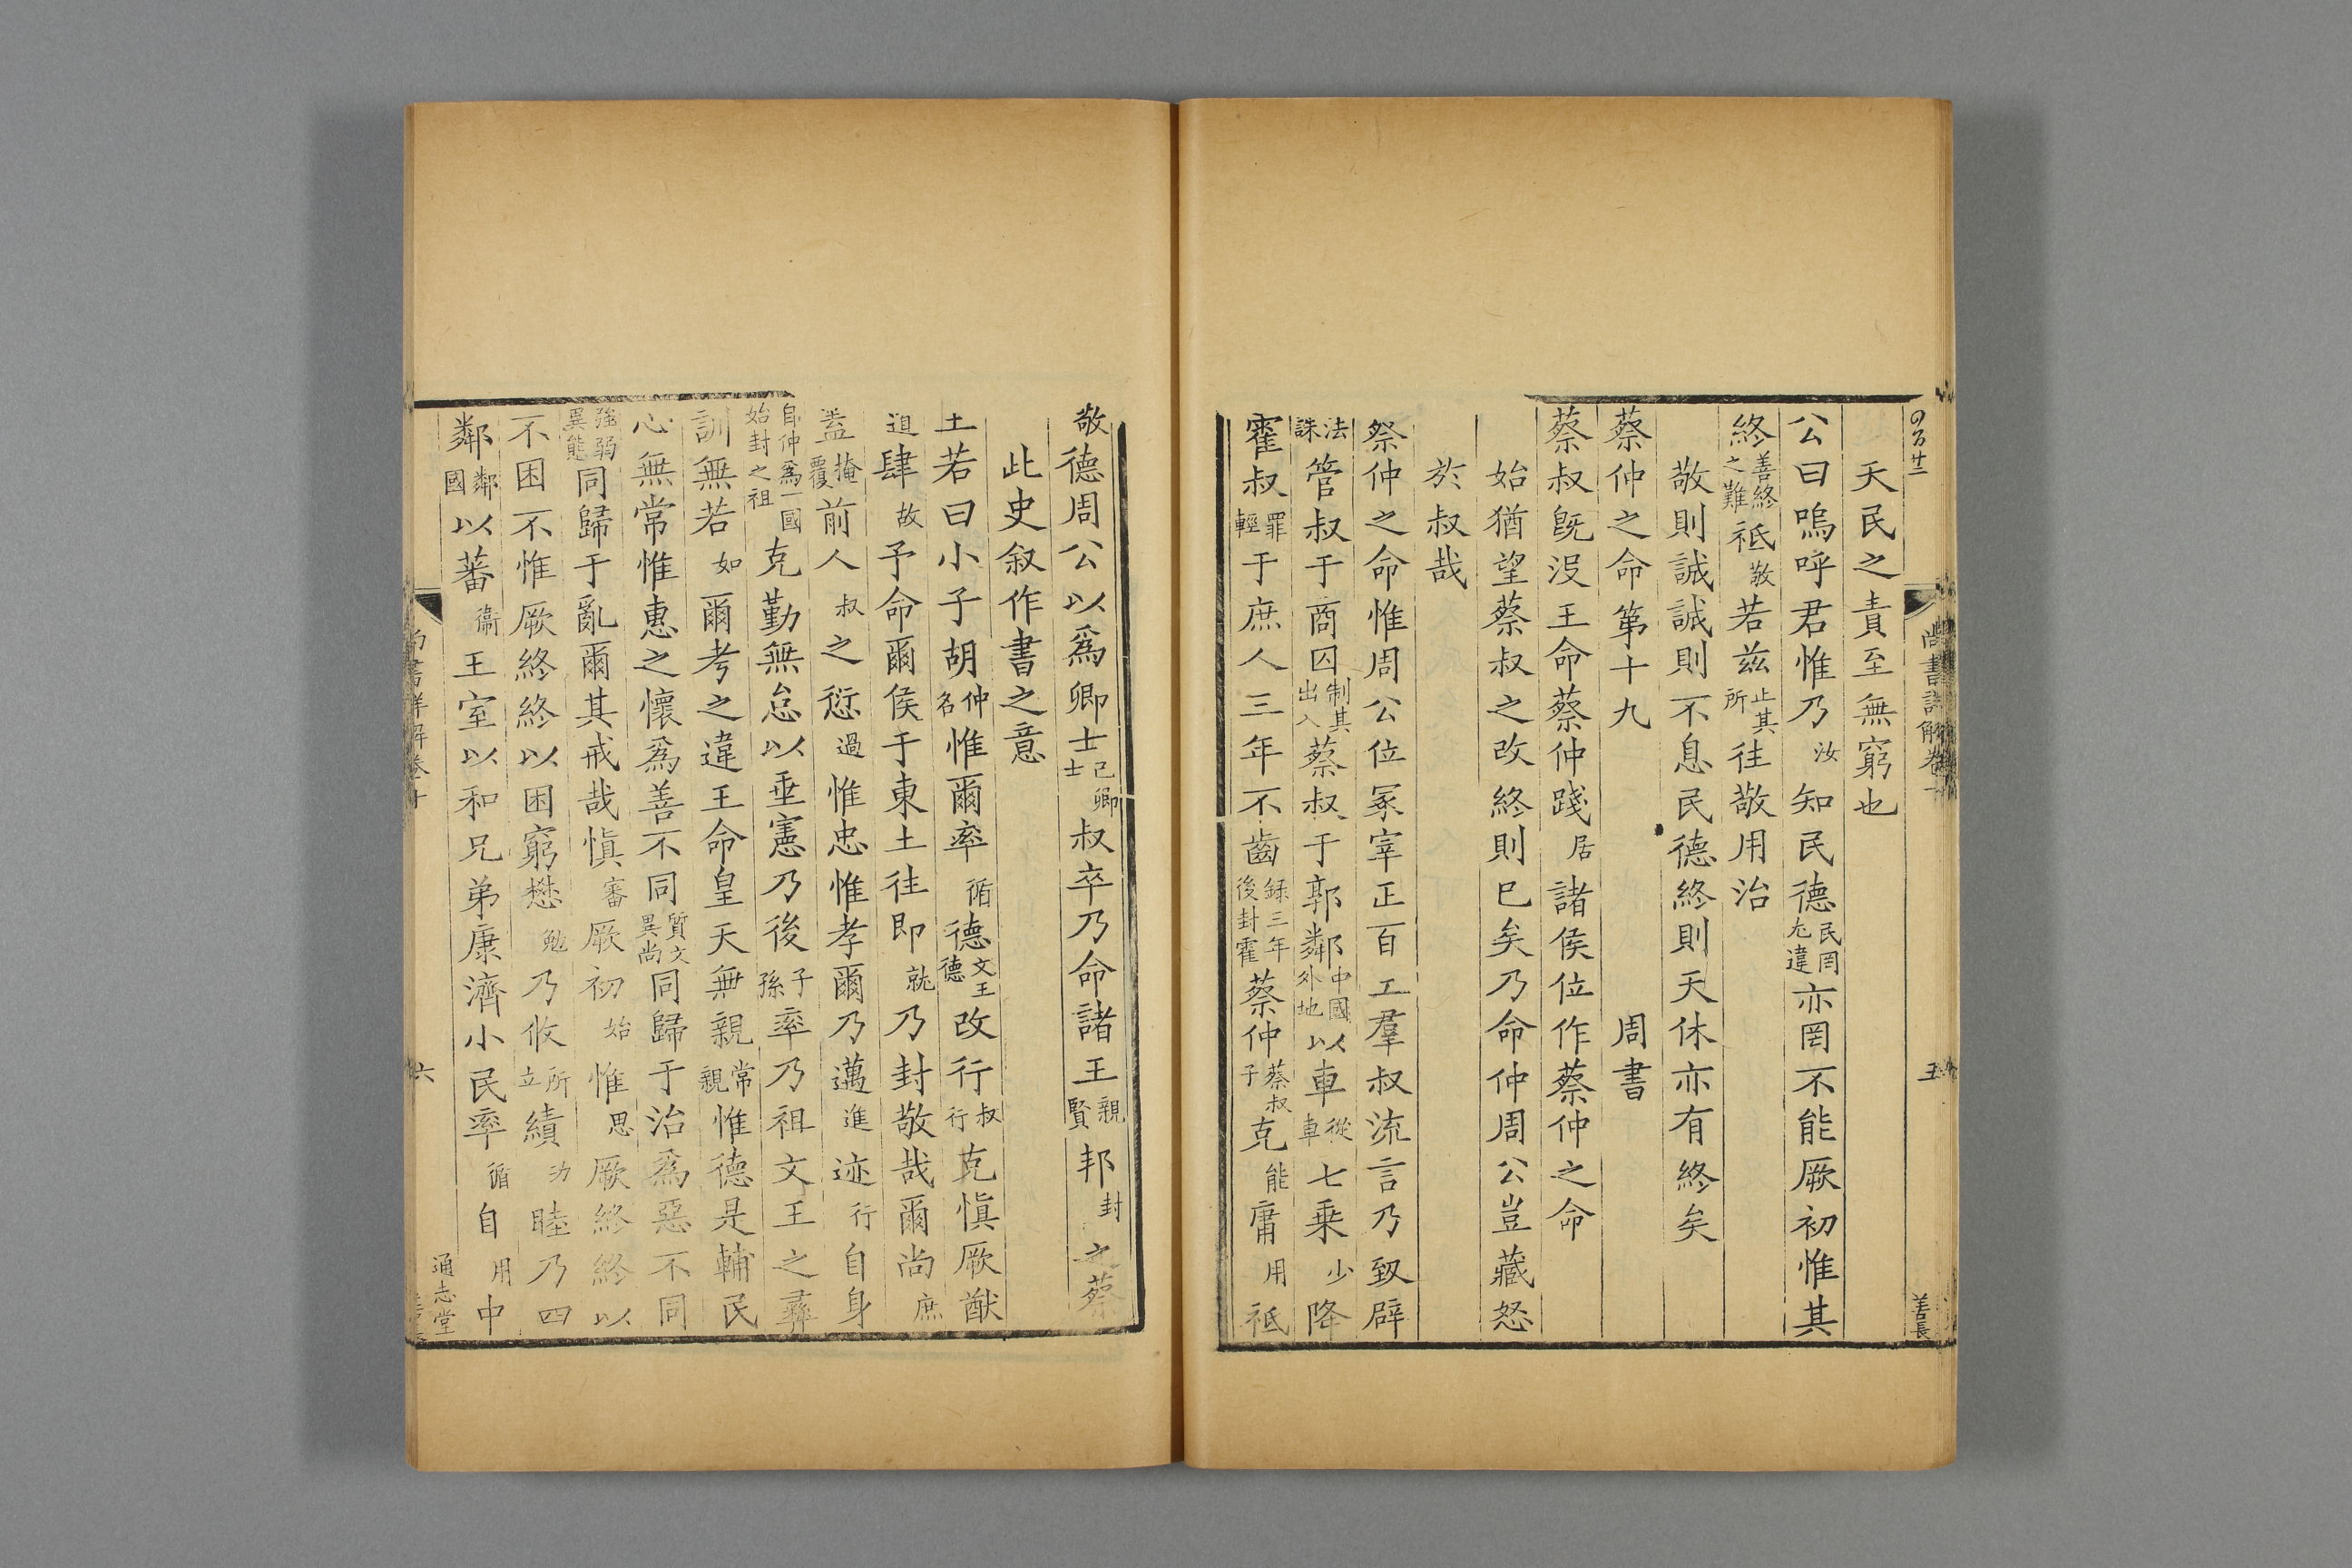 天民之責至無窮也
公曰嗚呼君惟乃汝知民德民罔尢違亦罔不能厥初惟其
終善終之難祗敬若兹止其所往敬用治
敬則誠誠則不息民德終則天休亦有終矣
蔡仲之命第十九 周書
蔡叔旣沒王命蔡仲踐居諸侯位作蔡仲之命
始猶望蔡叔之改終則巳矣乃命仲周公豈藏怒
於叔哉
祭仲之命惟周公位冢宰正百工羣叔流言乃致辟
法誅管叔于商囚制其出入蔡叔于郭鄰中國外地以車從車七乗少降
霍叔罪輕于庶人三年不齒録三年後封霍蔡仲蔡叔子克能庸用祗
敬德周公以爲卿士己卿士叔卒乃命諸王親賢邦封之蔡
此史叙作書之意
王若曰小子胡仲名惟爾率循德文王德改行叔行克愼厥猷
道肆故予命爾侯于東土往即就乃封敬哉爾尚庶
葢掩覆前人叔之愆過惟忠惟孝爾乃邁進迹行自身
自仲爲一國始封之祖克勤無怠以垂憲乃後子孫率乃祖文王之彞
訓無若如爾考之違王命皇天無親常親惟德是輔民
心無常惟惠之懷爲善不同質文異尚同歸于治爲惡不同
強弱異態同歸于亂爾其戒哉愼審厥初始惟思厥終終以
不困不惟厥終終以困窮懋勉乃攸所立績功睦乃四
鄰鄰國以蕃衞王室以和兄弟康濟小民率循自用中
尚書詳解卷十
五
六
善長
通志堂